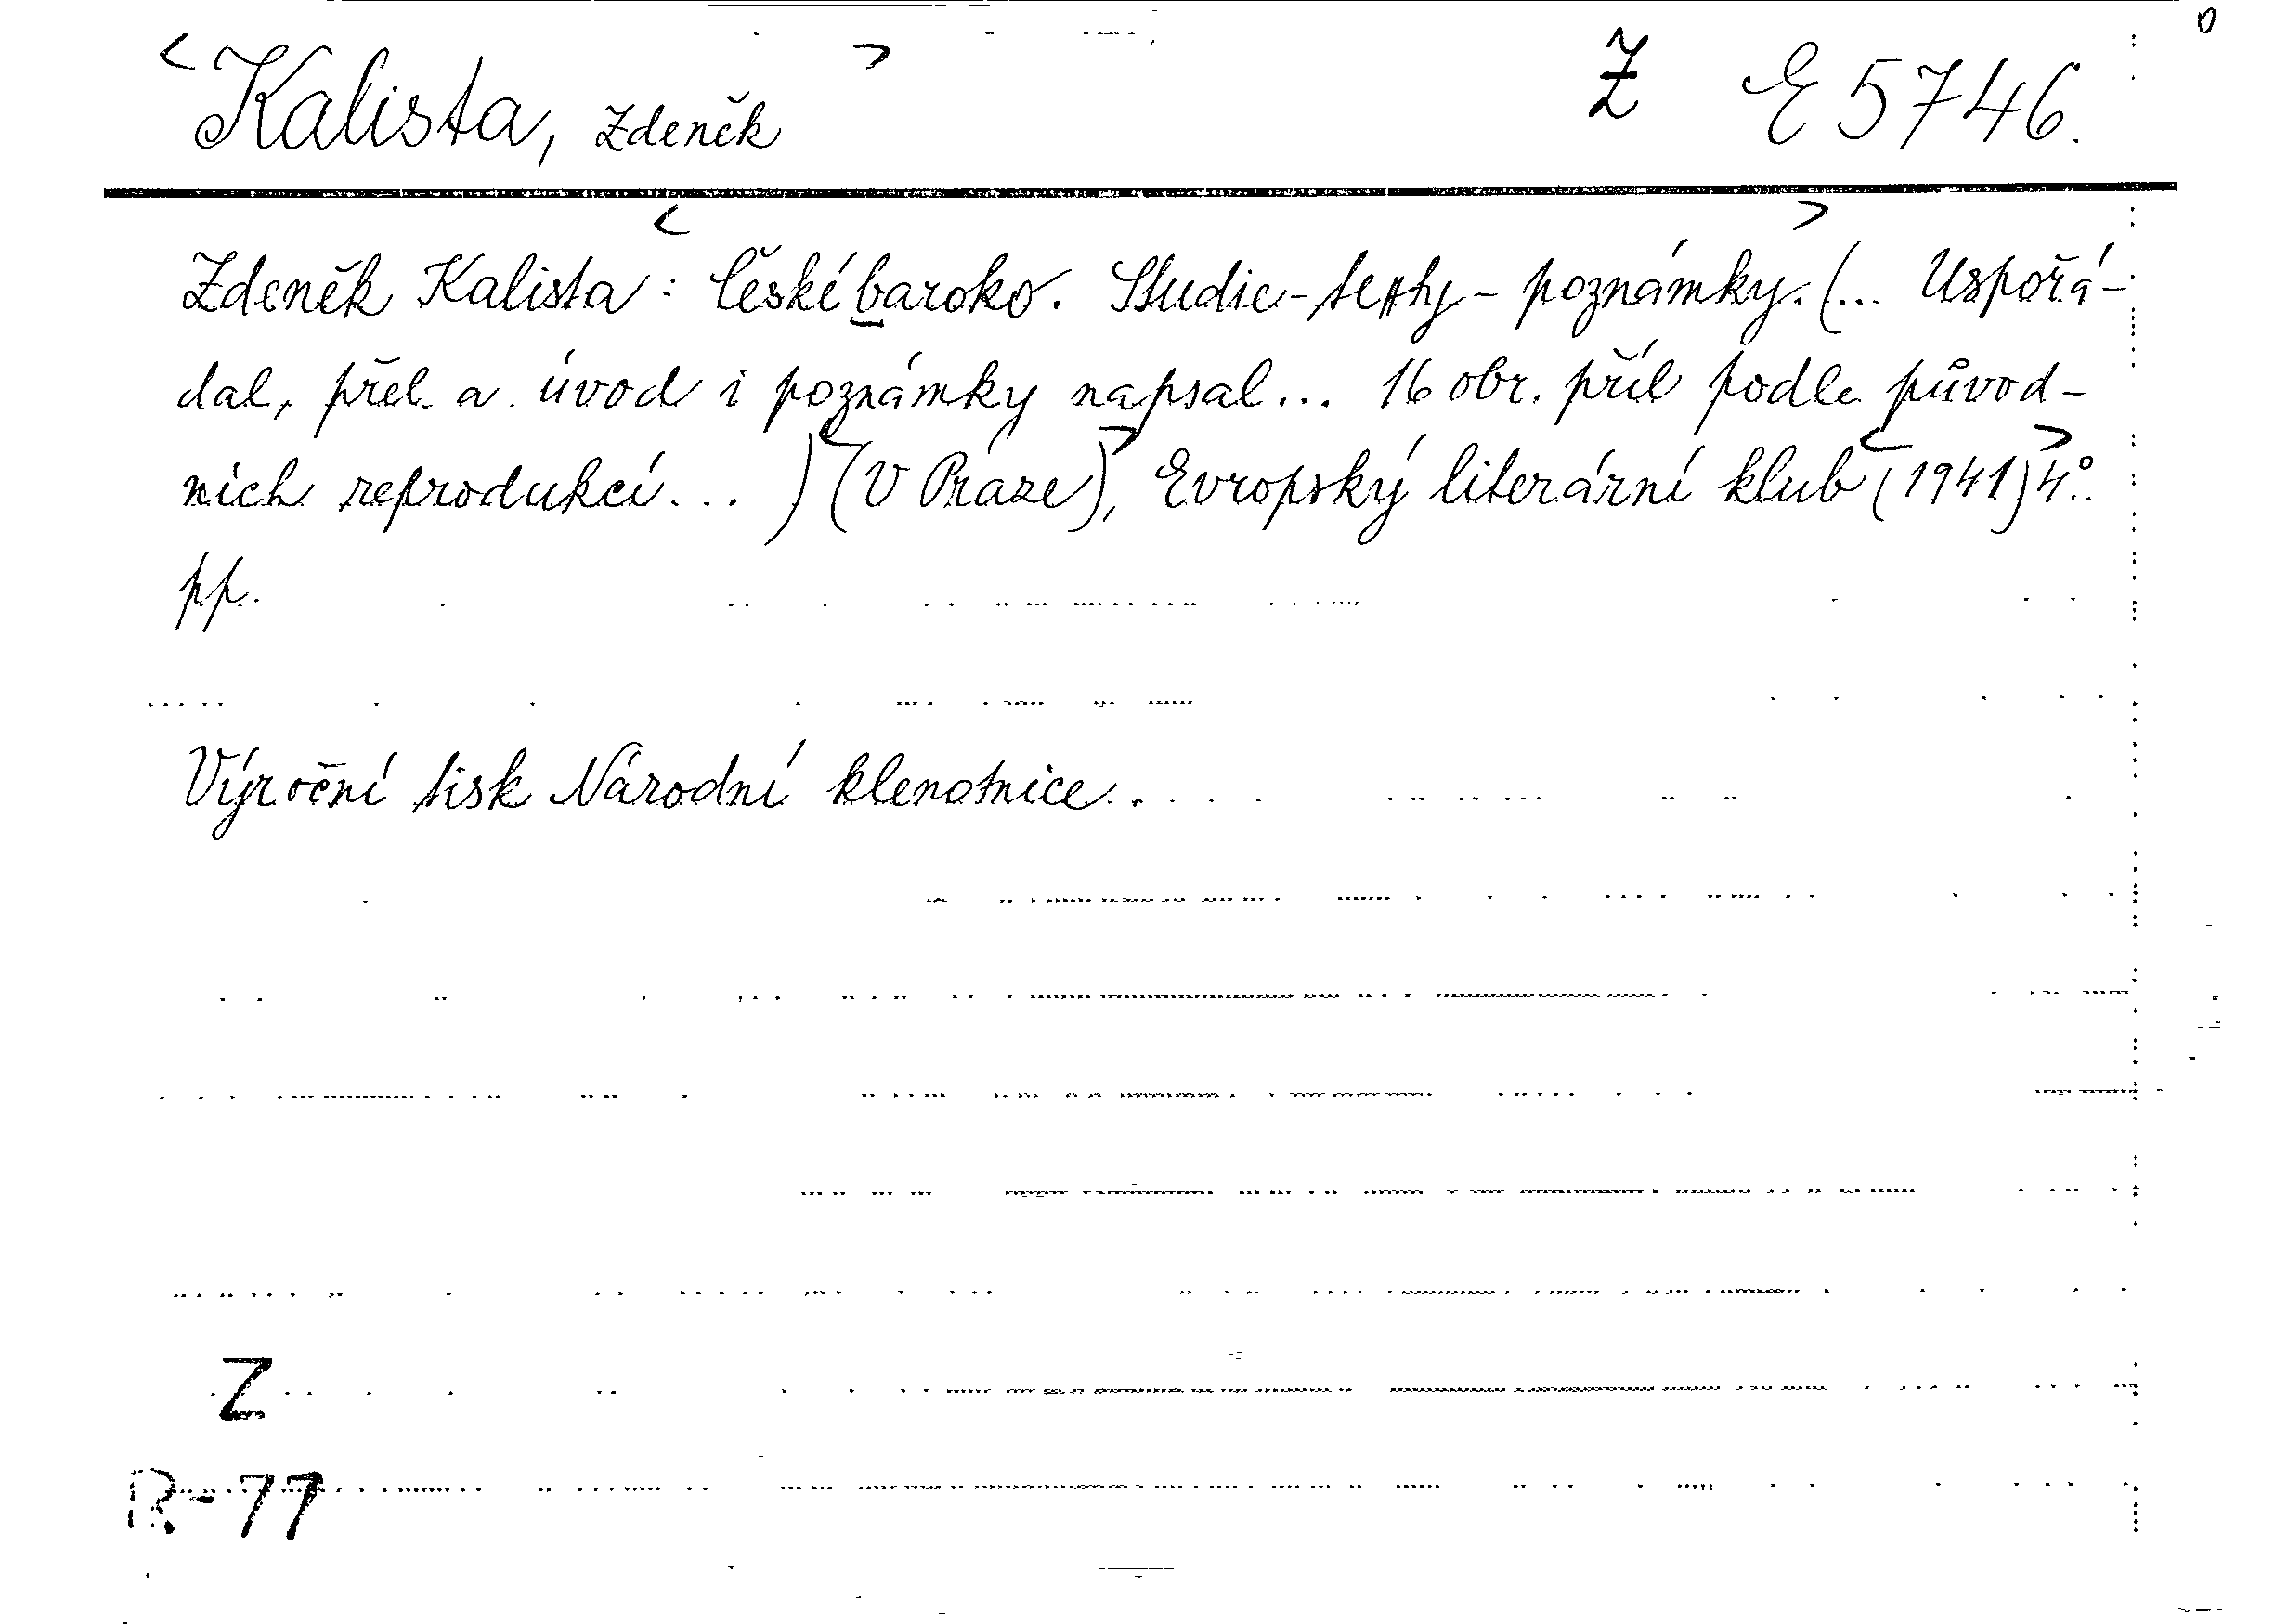 <Kalista, Zdeněk> Z E 5746.
Zdeněk Kalista: <České baroko. Studie-texty-poznámky.> (... Uspořá-
dal, přel. a úvod i poznámky napsal... 16 obr. příl podle původ-
ních reprodukcí... ) <(V Praze)>, Evropský literární klub <(1941)> 4°.
pp.
Výroční tisk Národní klenotnice.
Z
R-77